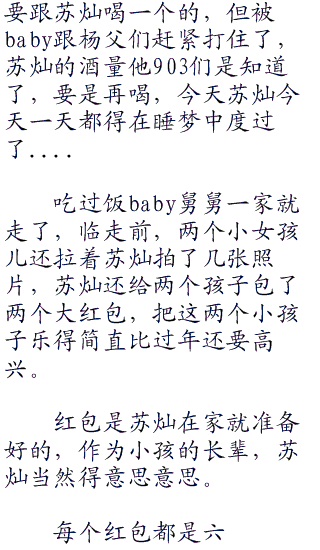 要跟苏灿喝一个的，但被
baby跟杨父们赶紧打住了，
苏灿的酒量他903们是知道
了，要是再喝，今天苏灿今
天一天都得在睡梦中度过
了....
吃过饭baby舅舅一家就
走了，临走前，两个小女孩
儿还拉着苏灿拍了几张照
片，苏灿还给两个孩子包了
两个大红包，把这两个小孩
子乐得简直比过年还要高
兴。
红包是苏灿在家就准备
好的，作为小孩的长辈，苏
灿当然得意思意思。
每个红包都是六